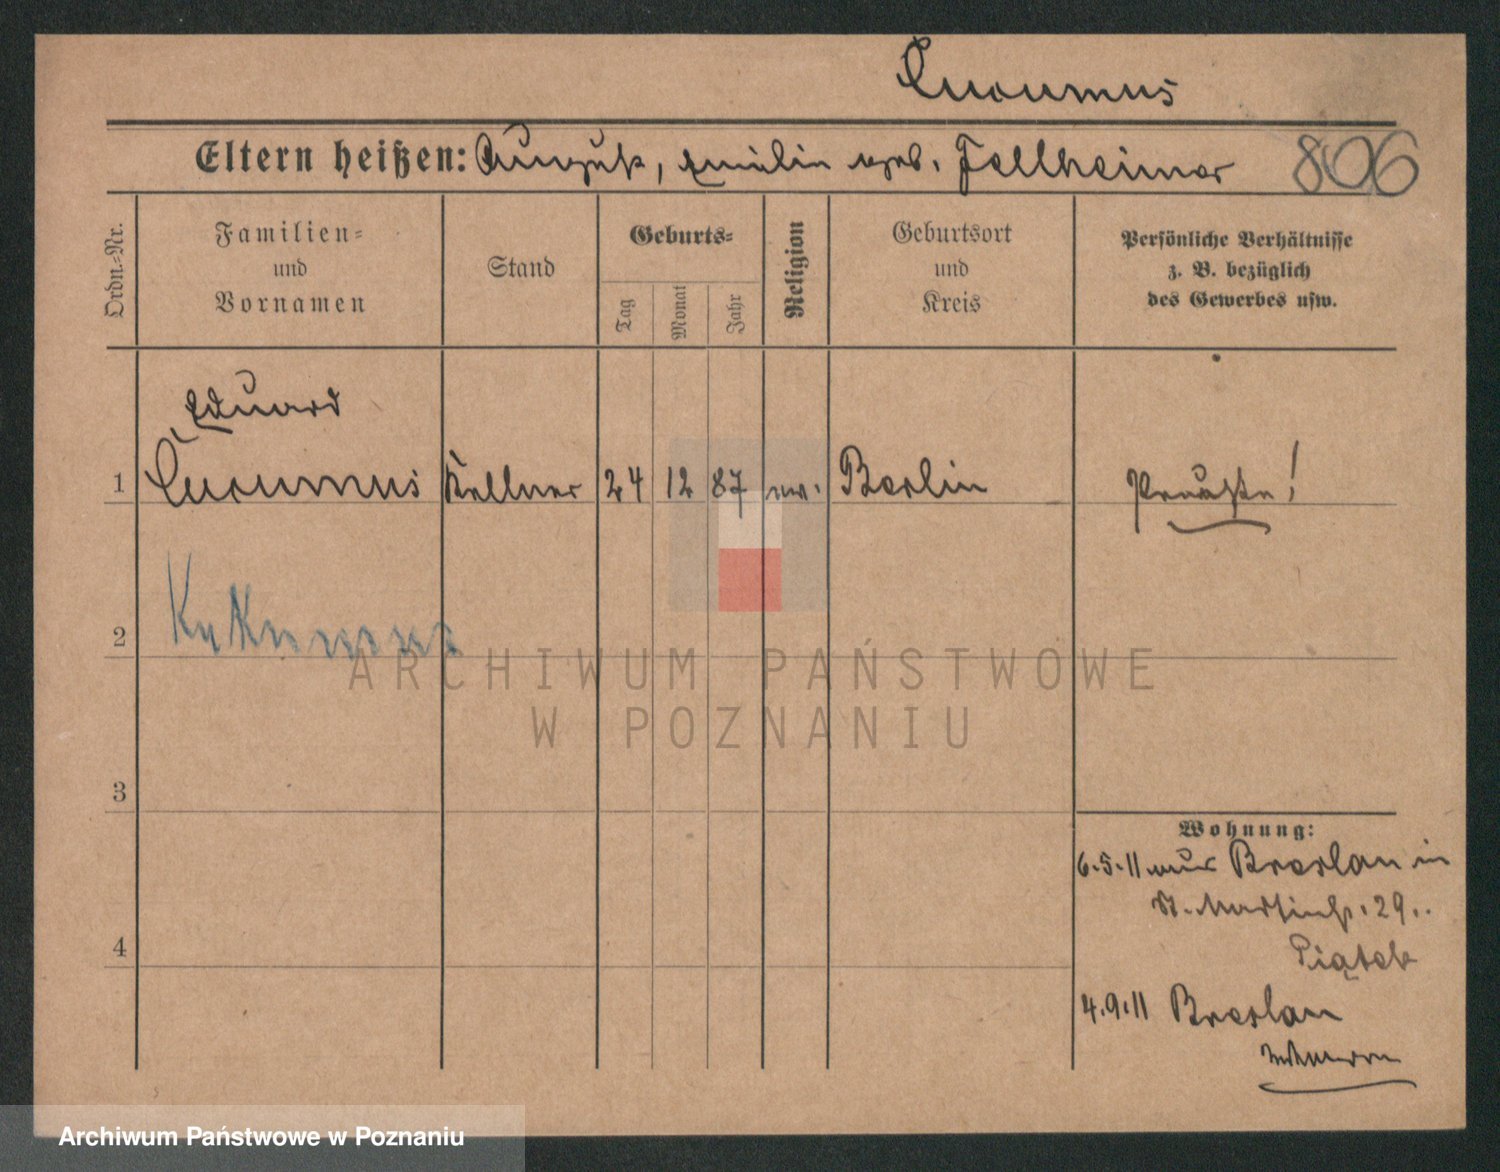 Eltern heißen: August, Emilie geb. Fellheimer 806
Ordn.-Nr.
Familien-
und
Vornamen
Stand
Geburts-
Tag
Monat
Jahr
Religion
Geburtsort
und
Kreis
Persönliche Verhältnisse
z. B. bezüglich
des Gewerbes usw.
Eduard
1 Kellner 24 12 87 ev. Berlin
2
ARCHIWUM PAŃSTWOWE
W POZNANIU
3
Wohnung:
6.5.11 aus Breslau in
St. Martinstr. 29.
Piątek
4
4.9.11 Breslau
Archiwum Państwowe w Poznaniu